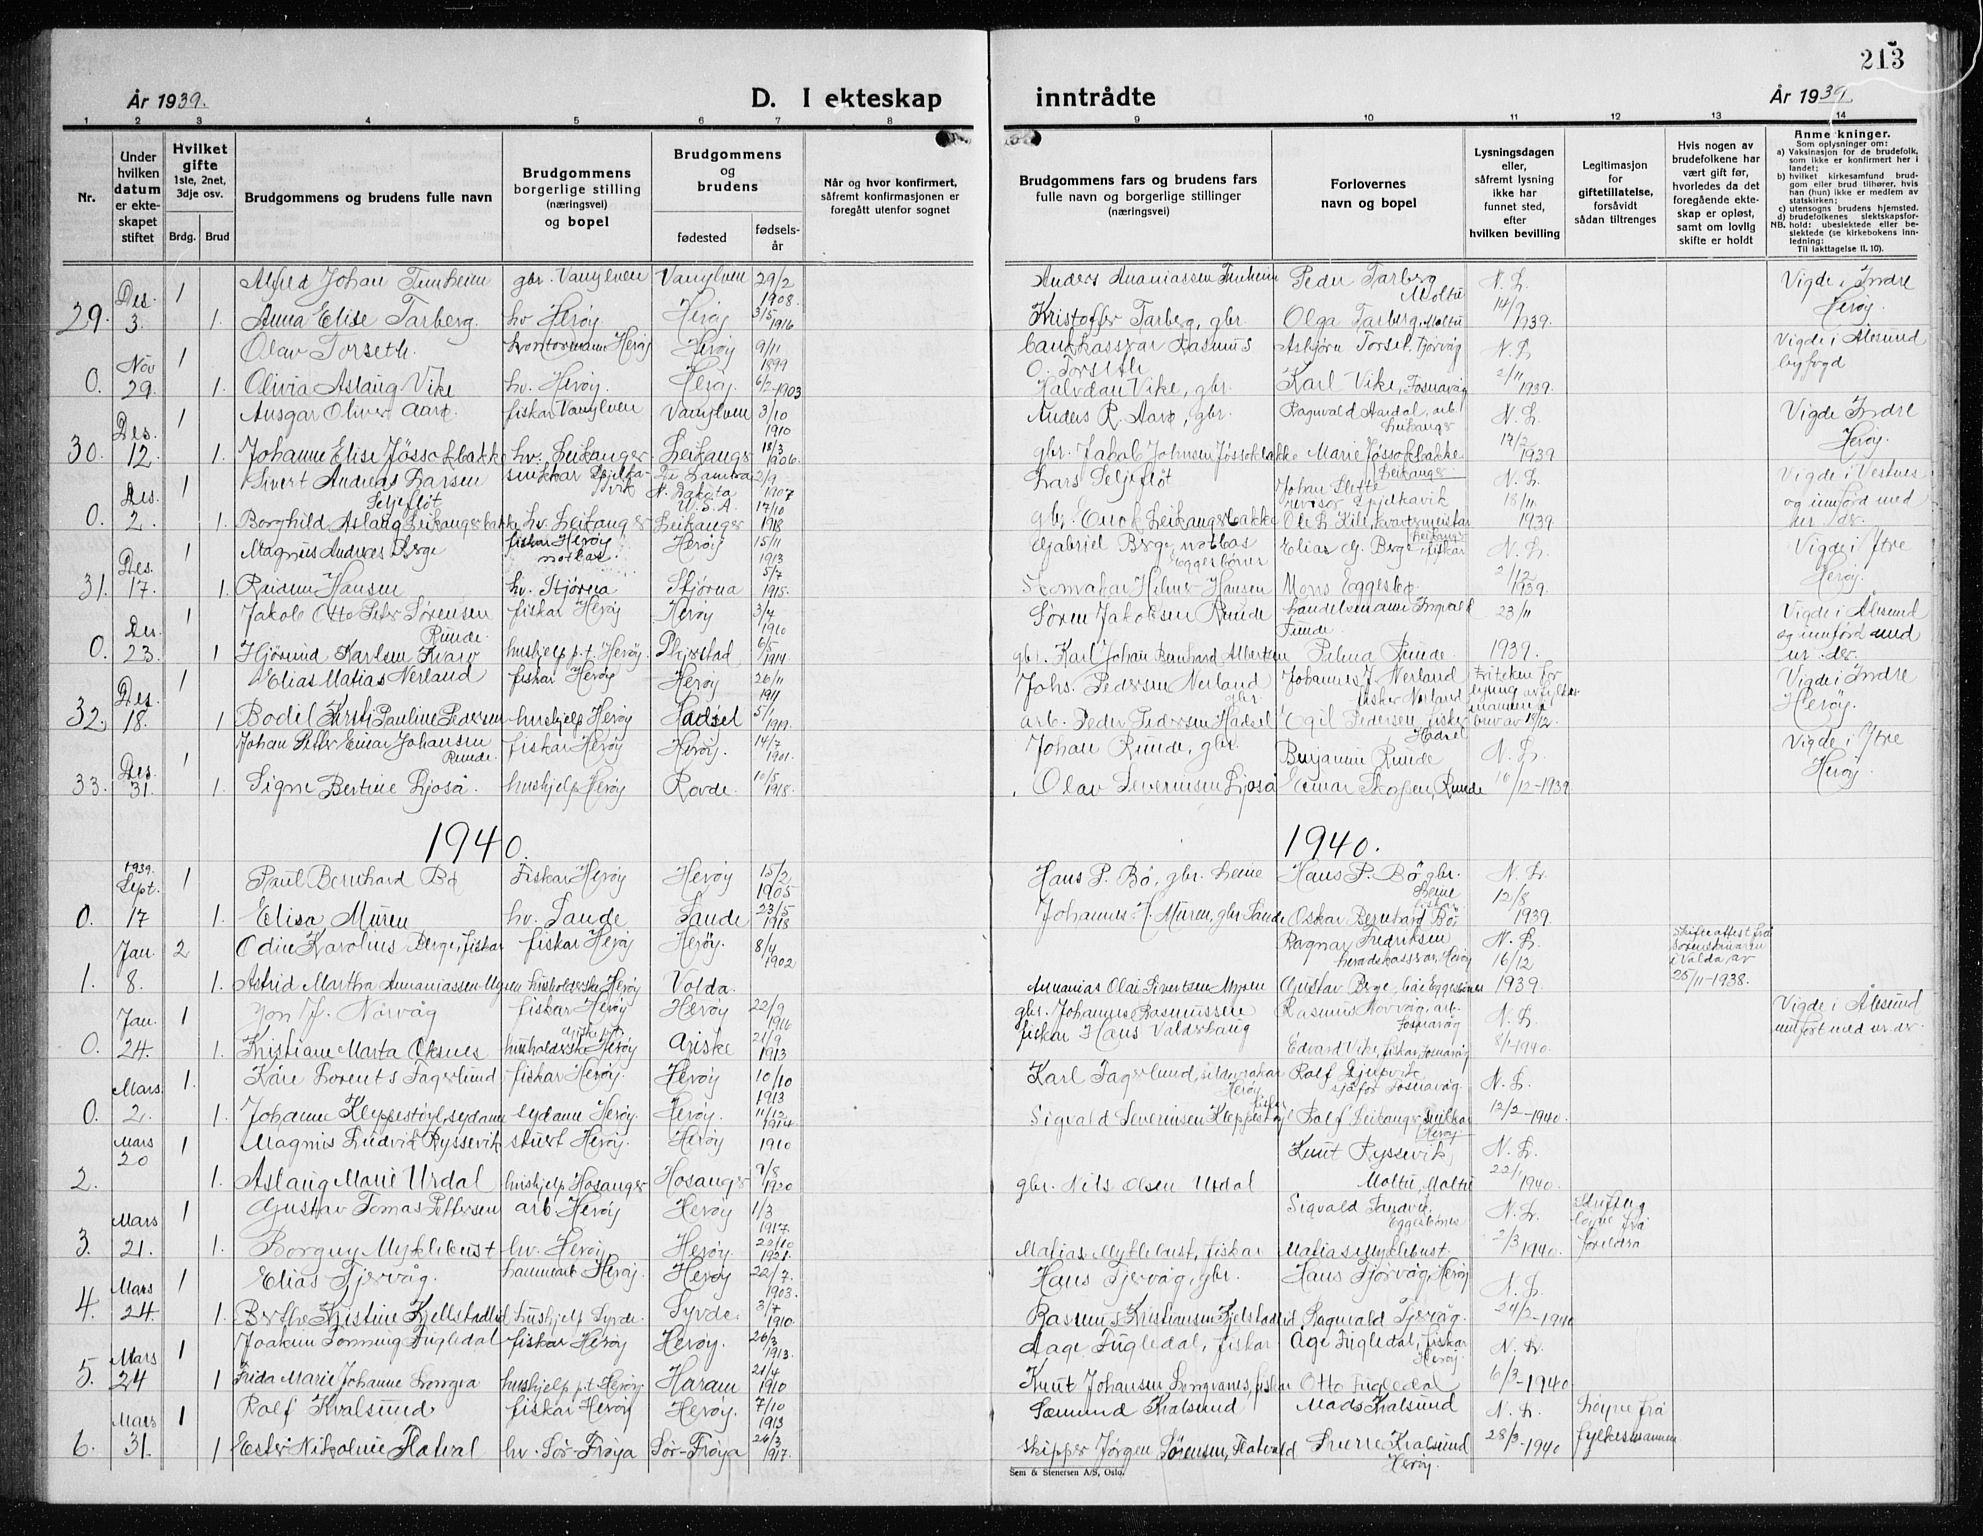 213
År 1939.
D. I ekteskap
inntrådte
År 1939
1 2 3 4 5 6 7 8
9 10 11 12 13 14
Nr.
Under hvilken datum er ekteskapet stiftet
Hvilket gifte 1ste, 2net, 3dje osv.
Brdg. Brud
Brudgommens og brudens fulle navn
Brudgommens borgerlige stilling (næringsvei) og bopel
Brudgommens og brudens
fødested
fødselsår
Når og hvor konfirmert, såfremt konfirmasjonen er foregått utenfor sognet
Brudgommens fars og brudens fars fulle navn og borgerlige stillinger (næringsvei)
Forlovernes navn og bopel
Lysningsdagen eller, såfremt lysning ikke har funnet sted, efter hvilken bevilling
Legitimasjon for giftetillatelse, forsåvidt sådan tiltrenges
Hvis nogen av brudefolkene har vært gift før, hvorledes da det foregående ekteskap er opløst, samt om lovlig skifte er holdt
Anme kninger.
Som oplysninger om:
a) Vaksinasjon for de brudefolk, som ikke er konfirmert her i landet;
b) hvilket kirkesamfund brudgom eller brud tilhører, hvis han (hun) ikke er medlem av statskirken;
c) utensogns brudens hjemsted.
d) brudefolkenes slektskapsforhold: ubeslektede eller beslektede (se kirkebokens innledning:
NB. Til iakttagelse II. 10).
Des. 1 Alfred Johan Tunheim gbr. Vanylven Vanylven 29/2 1908. Anders Ananiassen Tunheim Peder Tarberg Moltu N. L. Vigde i Indre
29. 3. 1. Anna Elise Tarberg. hv Herøy Herøy 3/5 1916 Kristoffer Tarberg, gbr. Olga Tarberg, Moltu 14/9 1939. Herøy.
Nov 1 Olav Torseth kontormann Herøy Herøy 9/11 1899 bankkasserar Rasmus O. Torseth Asbjørn Torset, Tjørvåg N. L. Vigde i Ålesund
0. 29. 1. Olivia Aslaug Vike hv. Herøy. Herøy. 6/2-1903 Halvdan Vike, gbr. Karl Vike, Fosnavåg 2/11 1939. byfogd
Des. 1 Ansgar Oliver Aarø. fiskar Vanylven Vanylven 3/10 1910 Anders R. Aarø, gbr. Ragnvald Aardal, arb. Leikanger N. L. Vigde Indre
30. 12. 1. Johanne Elise Jøssokbakke hv. Leikanger Leikanger 18/3 1906. gbr. Jakob Johnsen Jøssokbakke Marie Jøssokbakke Leikanger 1939 Herøy.
Des. 1 Sivert Andreas Larsen Seljeflöt snikkar Spjelkavik N. Dakota U.S.A. 2/9 1907 Lars Seljeflöt Johan Slette revisor Spjelkavik N. L. Vigde i Vestnes
0. 2. 1. Borghild Aslaug Leikangerbakke hv. Leikanger Leikanger 17/10 1918 gbr. Enok Leikangerbakke 18/11 1939. og innförd med
Des. 1 Magnus Andreas Berge fiskar Herøy notbas Herøy 15/11 1913 Gabriel Berge, notbas Eggesbönes Elias G. Berge, fiskar N. L. Vigde i Ytre
31. 17. 1. Hansen hv. Stjørna Stjørna 5/7 1915. Hansen Mons Eggesbø 2/12 1939. Herøy.
Des. 1 Jakob Otto Peter Sørensen Runde. fiskar Herøy Herøy 3/7 1910 Sören Jakobsen Runde handelsmann Ingvald Runde. 23/11 Vigde i Ålesund
0. 23. 1 Hjørund Karlsen Kvarv hushjelp p.t. Herøy. 6/5 1914 gbr. Karl Johan Bernhard Albertsen Runde. 1939. og innförd med
Des. 1 Elias Matias Nerland fiskar Herøy Herøy 26/11 1911 Johs. Pedersen Nerland gbr. Johannes J. Nerland fisker Nerland Friteken for lysing av fylkesmannen i Vigde i Indre
32. 18. 1 Bodil Kristi Pauline Pedersen hushjelp Herøy Hadsel 5/1 1919. arb. Peder Pedersen Hadsel Egil Pedersen, fisker Hadsel brev av 18/12. Herøy.
Des. 1 Johan Peter Einar Johansen Runde. fiskar Herøy Herøy. 14/7 1901. Johan Runde, gbr. Benjamin Runde N. L. Vigde i Ytre
33. 31. 1. Signe Bertine Ljoså. hushjelp Herøy Rovde. 10/5 1918. Olav Severinsen Ljoså Einar Skogen, Runde 10/12-1939 Herøy
1940. 1940.
1939. Sept. 1 Paul Bernhard Bø Fiskar Herøy Herøy 15/2 1905 Hans P. Bö, gbr. Leine Hans P. Bö gbr. Leine N. L. 12/8
0. 17 1. Elisa Muren hv. Sande Sande 23/5 1918 Johannes H. Muren, gbr Sande Oskar Bernhard Bö fiskar 1939.
Jan. 2 Odin Karolius Berge, fiskar fiskar Herøy Herøy. 8/4 1902 Ragnar Fredriksen heradskasserar, Herøy N. L. 16/12 Skifteattest frå Sorenskrivaren i Volda av
1. 8. 1. Astrid Martha Ananiassen Myren husholderske Herøy Volda. Ananias Olai Sivertsen Myren Gustav Berge, Eggesbönes 1939. 25/11-1938.
Jan. 1 Jon J. Nørvåg fiskar Herøy Herøy 22/9 1916 gbr. Johannes Rasmussen Rasmus Norvåg, arb. Fosnavåg N. L. Vigde i Ålesund
0. 24. 1. Kristiane Marta Oksnes husholderske Herøy Giske 21/9 1913 fiskar Hans Valderhaug Edvard Vike, fiskar, Fosnavåg 8/1-1940. innfört med ur. dr.
Mars 1. Kåre Lorents Fagerlund fiskar Herøy. Herøy 10/10 1913 Karl Fagerlund, Herøy Rolf Djupvik sjåfør Fosnavåg. N. L.
0. 2. 1. Johanne Kleppestøyl, sydame sydame Herøy. Herøy. 11/12 1914 Sigvald Severinsen Kleppestøyl fiskar Ralf Leikanger Herøy 12/2-1940.
Mars 20 1 Magnus Ludvik Ryssevik stuert Herøy. Herøy 1910 Knut Ryssevik, N. L.
2. 1. Aslaug Marie Urdal hushjelp Hosanger Hosanger 9/8 1920 gbr. Nils Olsen Urdal Moltu, Moltu 22/1 1940.
Mars 1 Gustav Tomas Pettersen arb. Herøy Herøy 1/3 1917. Sigvald Sandvik, Eggesbönes N. L. Skriftleg løyve frå
3. 21. 1. Borguy Myklebust hv. Herøy Herøy. 22/10 1921. Matias Myklebust, fiskar Matias Myklebust. 2/3 1940. foreldra
Mars 1 Elias Tjervåg. Herøy. Herøy 22/7. 1903. Hans Tjervåg, gbr. Hans Tjörvåg, Herøy N. L.
4. 24. 1. Berthe Kristine Kjellstadlid hushjelp Syvde. Syvde. 3/7 1910 Rasmus Kristiansen Kjelstadlid Ragnvald Tjervåg. 24/2-1940
Mars 1 Joakim Tonning Fugledal fiskar Herøy Herøy. 26/3 1913. Aage Fugledal, fiskar Åge Fugledal, fiskar Herøy. N. L.
5. 24 1 Frida Marie Johanne Longva hushjelp p.t. Herøy. Haram 21/4 1910 Knut Johansen Longvanes, fiskar Otto Fugledal 6/3-1940
Mars 1 Rolf Kvalsund fiskar Herøy Herøy. 7/10 1913 Sæmund Kvalsund Mads Kvalsund N. L. Løyve frå
6. 31. 1 Ester Nikoline Flatval hv. Sør-Frøya Sør-Frøya 26/3 1917. skipper Jörgen Sörensen, Flatvald Sverre Kvalsund Herøy. 28/3-1940 fylkesmannen
Sem & Stenersen A/S, Oslo.